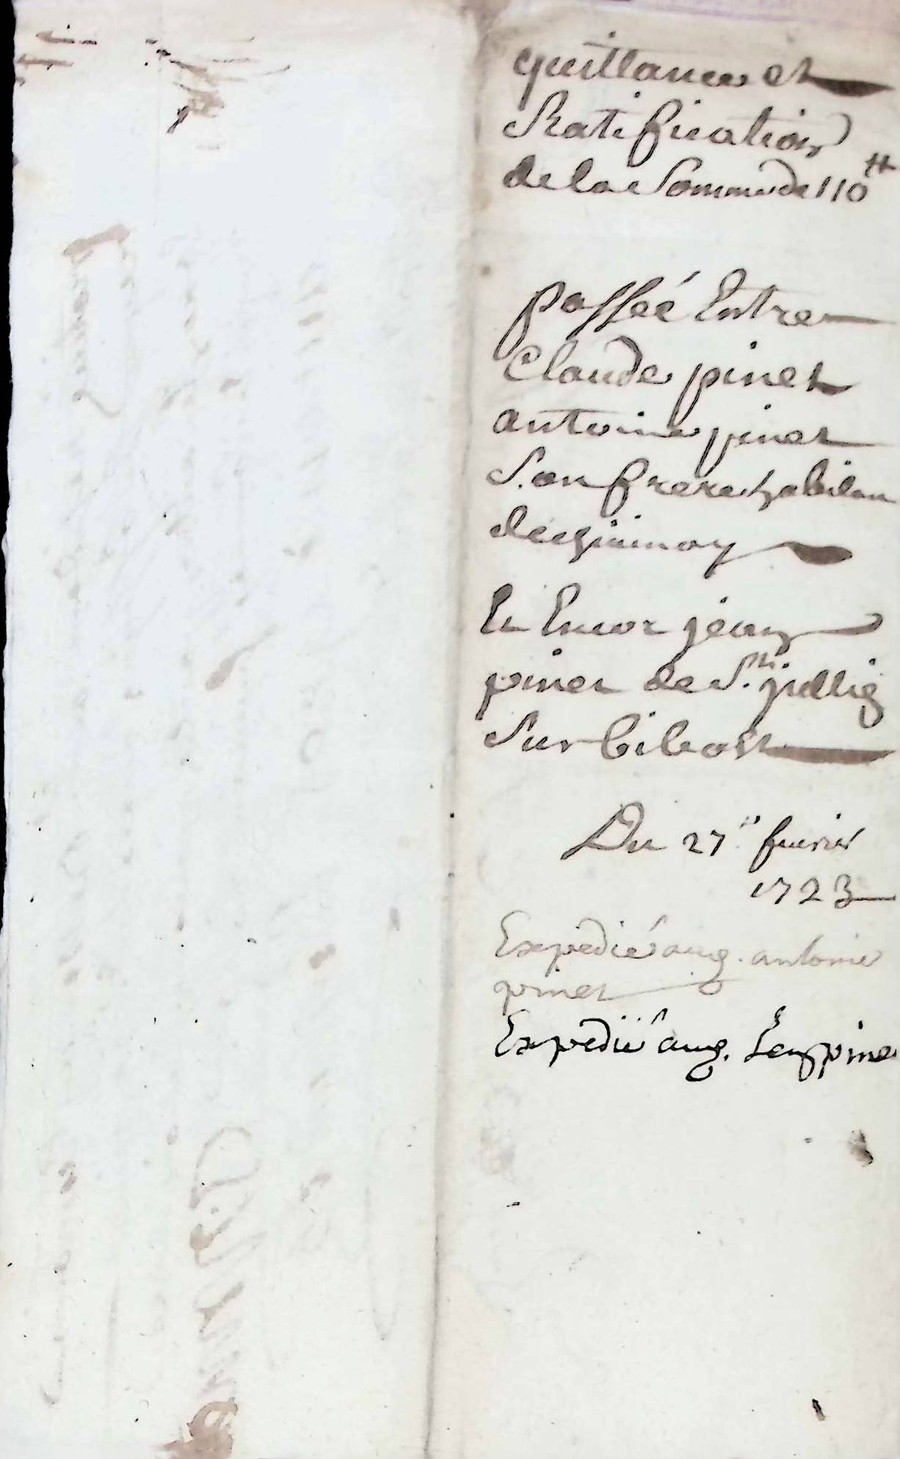 quittance et
Ratification
de la Somme de 110 ₶
passeé Entre
Claude pinet
antoine pinet
Son frere habitan
de chimnoy
Et Encor jean
pinet de St. jullig
Sur bibost
Du 27e fevrier
1723
Expedié aug. antoine
pinet
Expedié aug. Jean pine